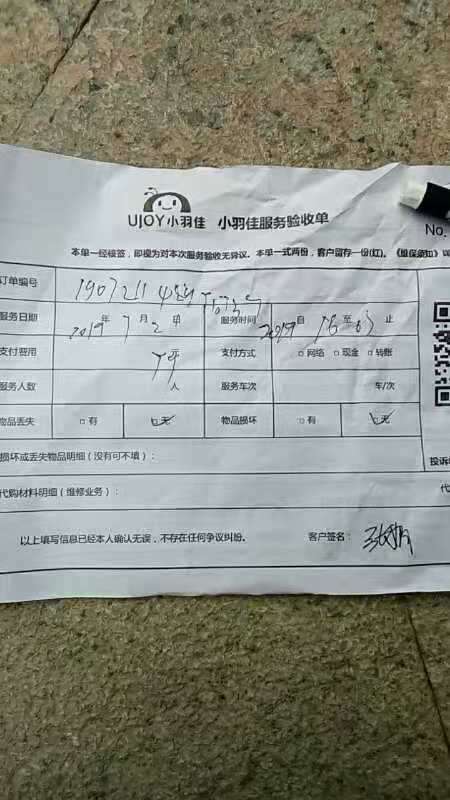 UJOY小羽佳 小羽佳服务验收单
No.
本单一经核签，即视为对本次服务验收无异议。本单一式两份，客户留存一份(红)。《维保须知》
订单编号
服务日期 2019年7月2 服务时间 自 至 止
支付费用 元 支付方式 □网络 □现金 □转账
服务人数 人 服务车次 车/次
物品丢失 □有 □无 物品损坏 □有 □无
损坏或丢失物品明细（没有可不填）：
投诉
代购材料明细（维修业务）：
代
以上填写信息已经本人确认无误，不存在任何争议纠纷。 客户签名：